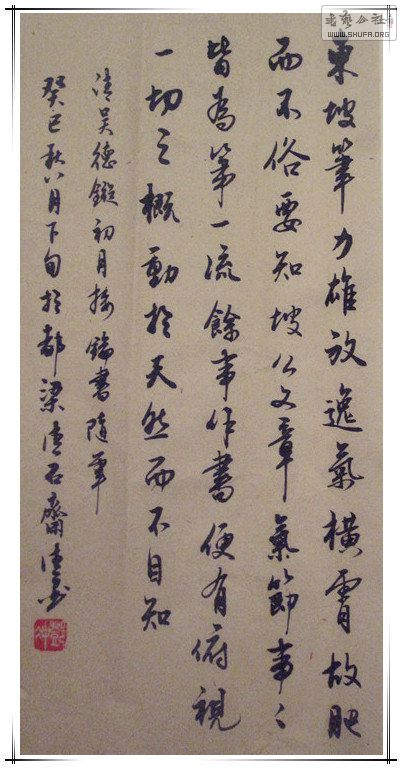 東坡筆力雄放逸氣橫霄故肥
而不俗要知坡公文章氣節事〻
皆為第一流餘事作書便有俯視
一切之概動於天然而不自知
清吴德鏇初月樓論書隨筆
癸巳秋八月下旬於都梁清石齋
書藝公社
WWW.SHUFA.ORG